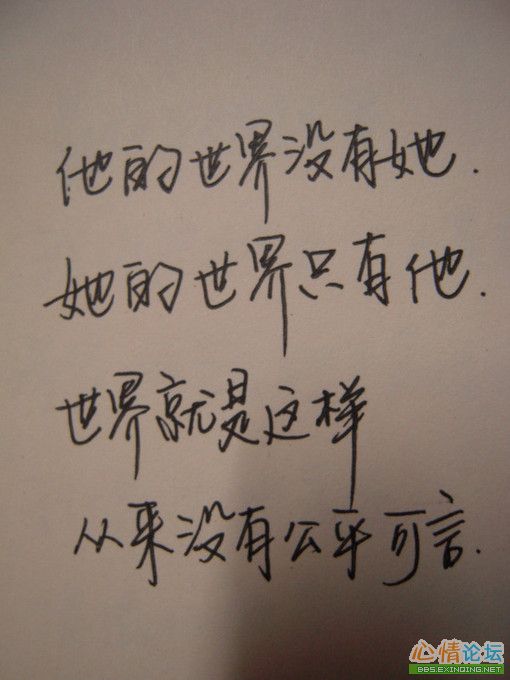 他的世界没有她.
她的世界只有他.
世界就是这样
从来没有公平可言.
心情论坛
BBS.EXINQING.NET